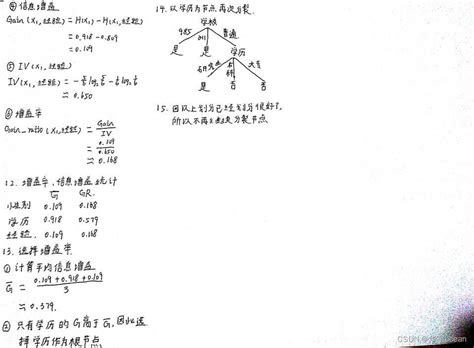 ④ 信息增益
Gain(X₁,经验) = H(X₁) - H(X₁,经验)
= 0.918 - 0.809
= 0.109
⑤ IV(X₁,经验)
IV(X₁,经验) =
≈ 0.650
⑥ 增益率
Gain_ratio(X₁,经验) = Gain/IV
≈ 0.109/0.650
≈ 0.168
12. 增益率、信息增益统计
G GR
性别 0.109 0.168
学历 0.918 0.579
经验 0.109 0.168
13. 选择增益率
① 计算平均信息增益
G̅ = (0.109+0.918+0.109)/3
≈ 0.379
② 只有学历的G高于G̅,因此选
择学历作为根节点
14. 以学历为节点再次分裂
学校
985 211 普通
是 是 学历
研究生 本科 大专
是 否 否
15. 因以上划分已经划分很好了,
所以不再分裂节点
CSDN